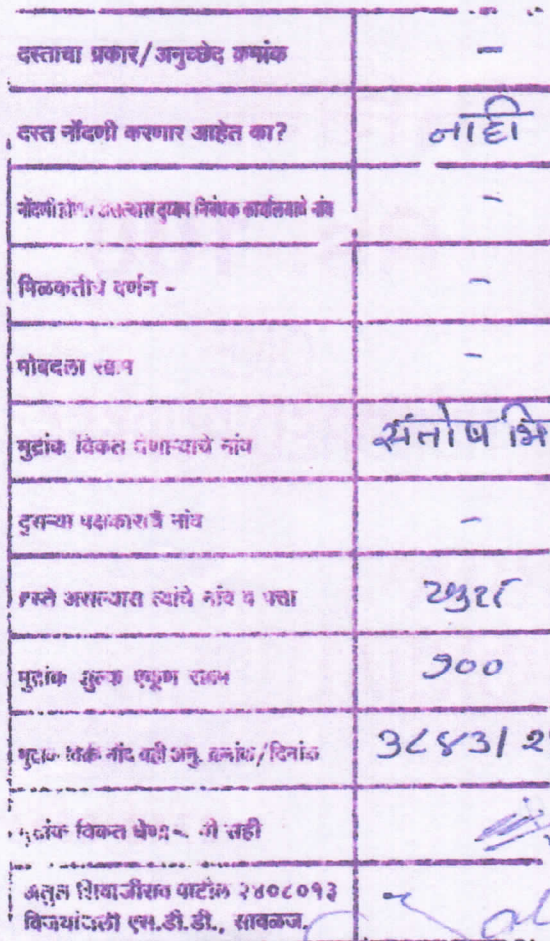 दस्ताचा प्रकार/अनुच्छेद क्रमांक -
दस्त नोंदणी करणार आहेत का? नाही
नोंदणी होणार असल्यास दुय्यम निबंधक कार्यालयाचे नांव -
मिळकतीचे वर्णन - -
मोबदला रक्कम -
मुद्रांक विकत घेणाऱ्याचे नांव संतोष भि
दुसऱ्या पक्षकाराचे नांव -
हस्ते असल्यास त्यांचे नांव व पत्ता
मुद्रांक शुल्क एकूण रक्कम १००
मुद्रांक विक्री नोंद वही अनु. क्रमांक/दिनांक
मुद्रांक विकत घेणाऱ्याची सही
अतुल शिवाजीराव पाटील २४०८०१३
विजयांजली एस.टी.डी., सावळज.